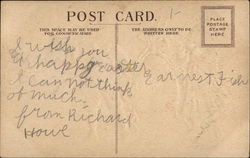 POST CARD.
THIS SPACE MAY BE USED FOR COMMUNICATION
THE ADDRESS ONLY TO BE WRITTEN HERE
PLACE POSTAGE STAMP HERE
I wish you
a happy easter
I can not think
of much.
from Richard
Howe
Earnest Fish